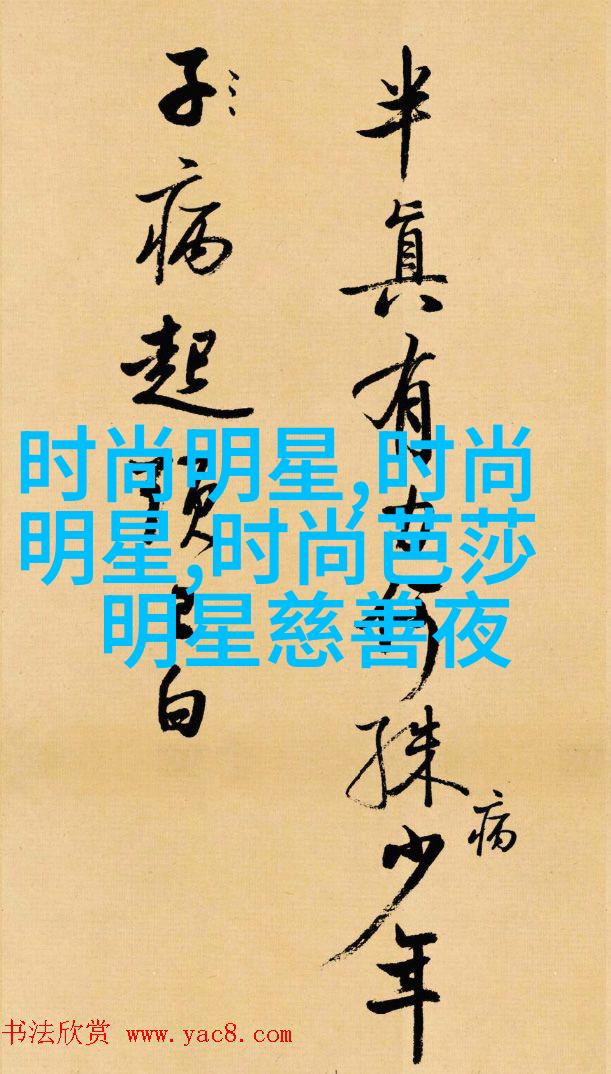 半眞有 少年
病
子 病起 白
时尚明星,时尚
明星,时尚芭莎
明星慈善夜
书法欣赏 www.yac8.com